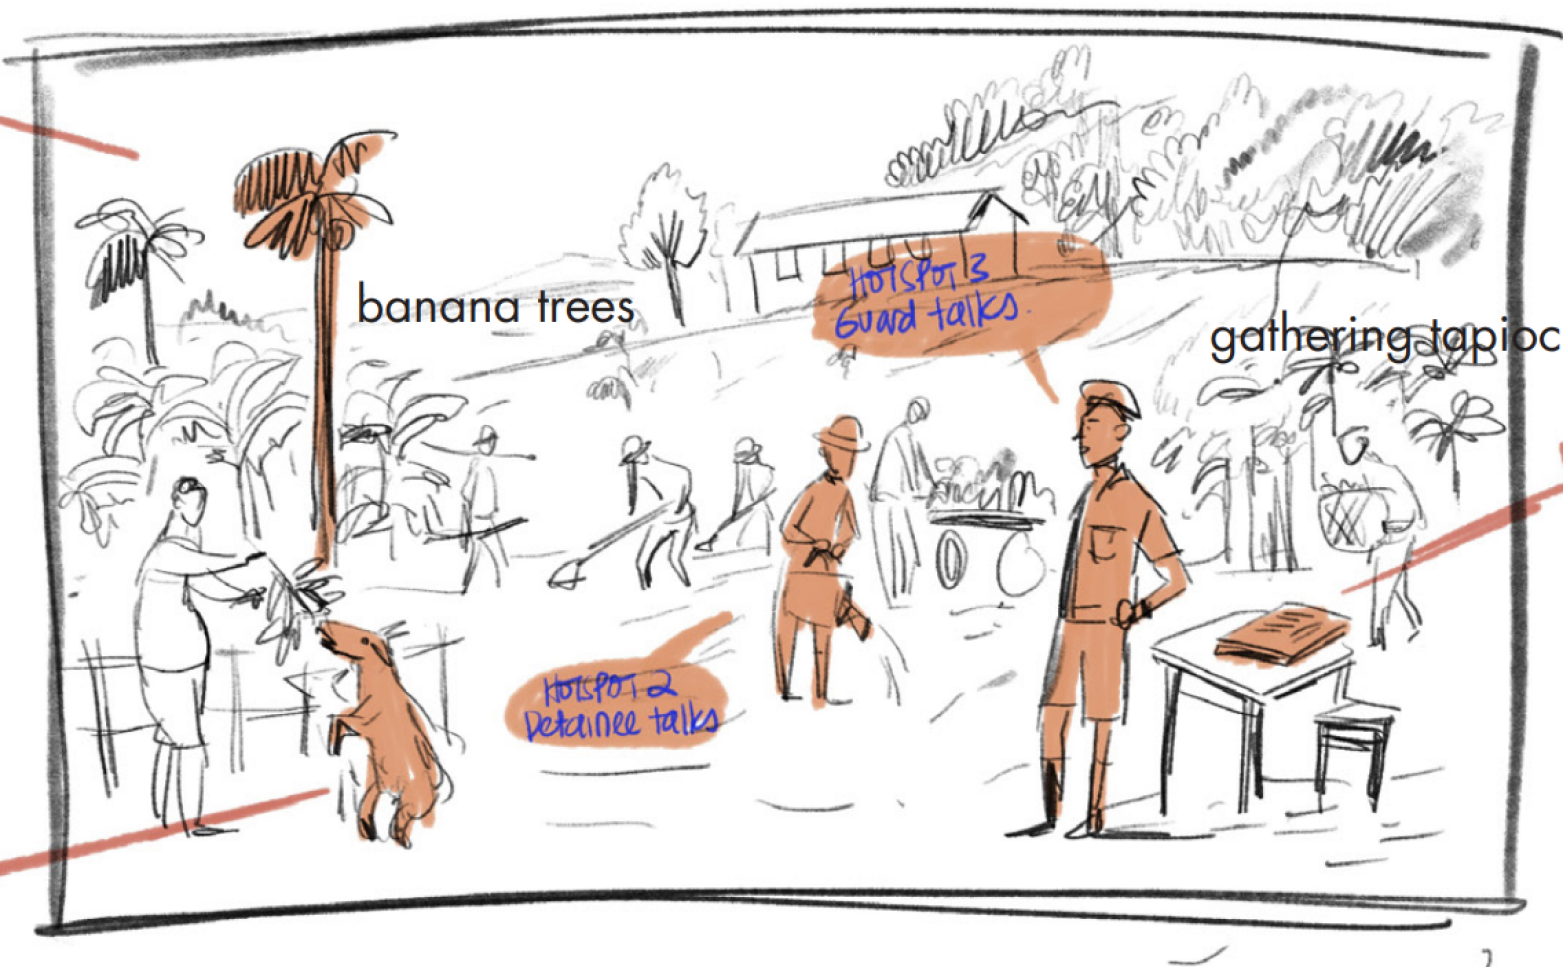 banana trees
HOTSPOT 3
Guard talks.
gathering tapioc
HOTSPOT 2
Detainee talks